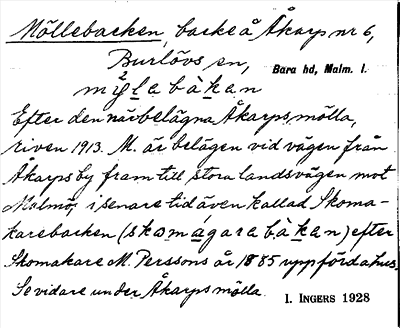 Möllebacken, backe å Åkarp nr 6,
Burlövs sn, Bara hd, Malm. l.
mỳlabàkan
Efter den närbelägna Åkarps mölla,
riven 1913. M. är belägen vid vägen från
Åkarps by fram till stora landsvägen mot
Malmö, i senare tid även kallad Skoma-
karebacken (skomágarabàkan) efter
Skomakare M. Perssons år 1885 uppförda hus.
Se vidare under Åkarps mölla.
I. INGERS 1928